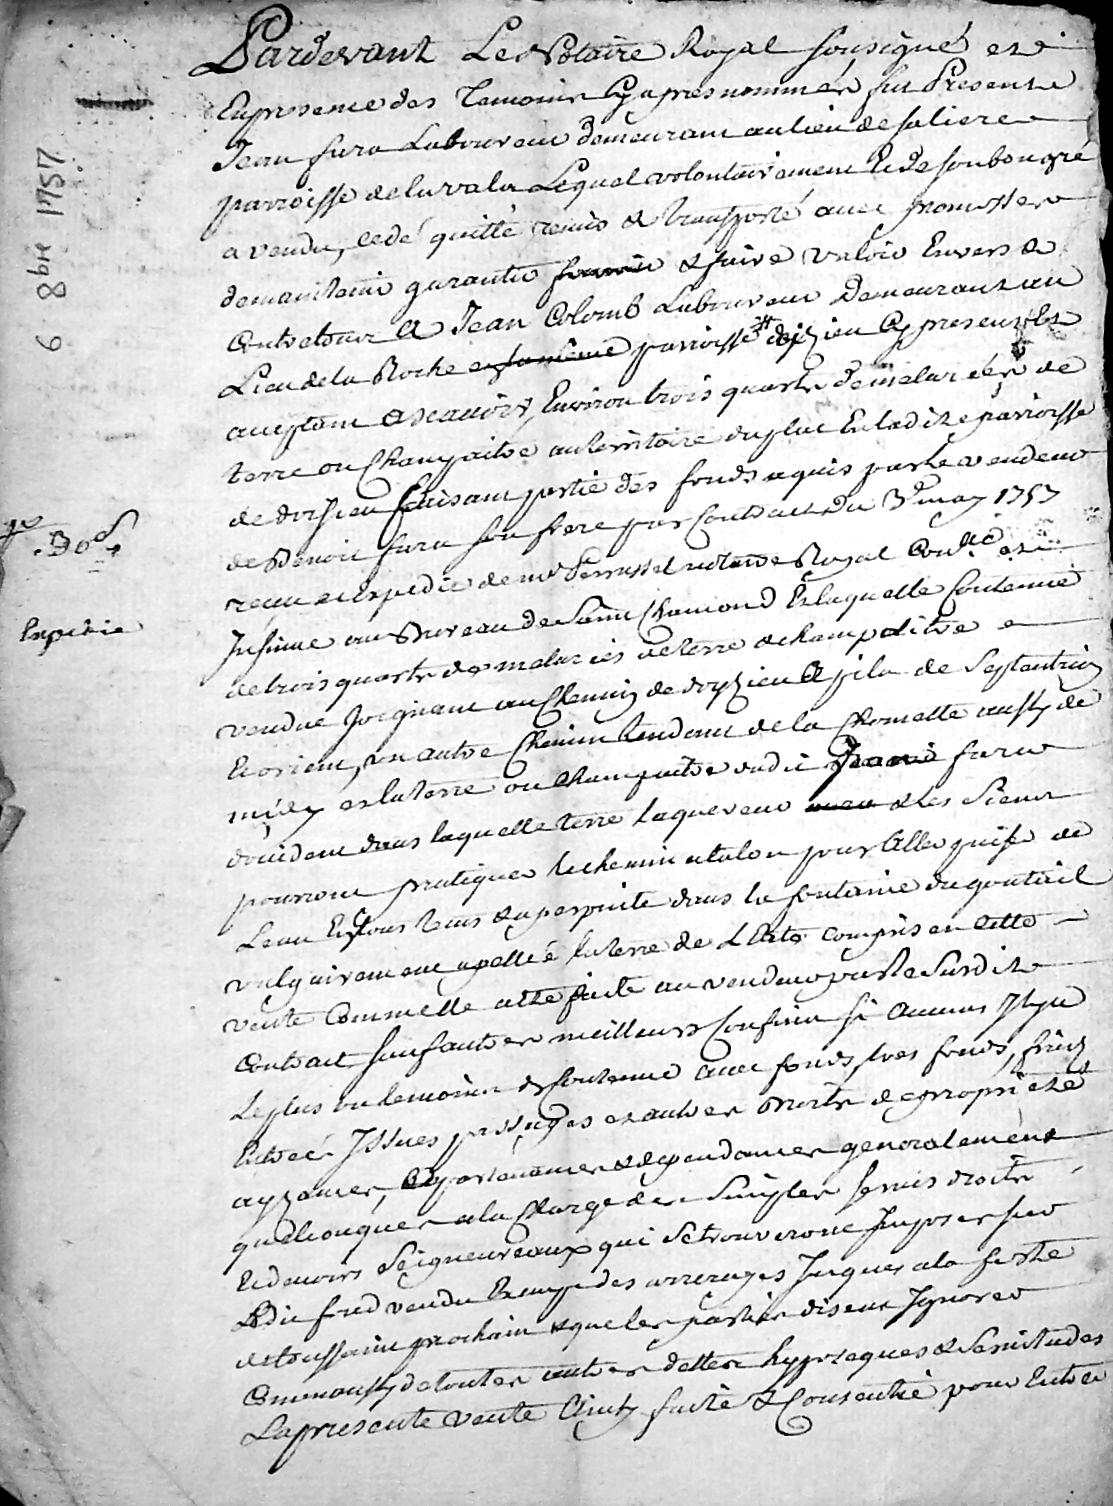 6 8bre 1757
Pardevant Le Notaire Royal soussigné et
En presence des Temoins Cy apres nommés fut Present
Jean fura Laboureur demeurant au lieu de saliere
parroisse de lavala Lequel volontairement Et de son bon gré
a vendu, cedé quitté remis & transporté avec promesse
de maintenir garantir & faire valoir Envers &
Contre tous A Jean Colomb Laboureur Demeurant au
Lieu de la Roche en la même parroisse doizieu Cy present &
acceptant a scavoir Environ trois quarts de metanchée de
terre ou Champaitre au territoire du plat En ladite parroisse
de doizieu faisant partie des fonds aquis par le vendeur
de Benoit fura son frere par Contract du 3e may 1757
receu et expedié de me Perrussel notaire Royal Con.lé et
Insinué au Bureau de Saint Chamond Et laquelle Contenue
de trois quarts de de terre & champaitre
vendue Joignant au Chemin de doyzieu A pila de Septentrion
Et orient, un autre Chemin tendant de la Chomette aussy de
midy et la terre ou Champaitre dudit fura
doccident dans laquelle terre Laquereur & les Siens
pourront pratiquer le chemin a talon pour aller puiser de
Leau En tous tems & a perpetuité dans la fontaine du goutail
vulgairement apellée la terre de compris en cette
vente Comme elle a été faite au vendeur par le Susdit
Contract sauf autres meilleurs Confins si aucuns Il y a
Le plus ou le moins de Contenue avec fonds, tres fonds, fruits
Entrées Issues passages et autres Droits de proprieté
ayzances, Apartenances & dependances generalement
quelconques a la Charge des Simples servis droits
Et devoirs Seigneureaux qui se trouveront Imposés sur
Ledit fond vendu Exempt des arrerages Jusques a la feste
de toussaint prochain & que les parties disent Ignorer
Comme aussy de toutes autres dettes hypoteques & Servitudes
La presente vente Ainsy faite & Consentie pour Entre
Expedié